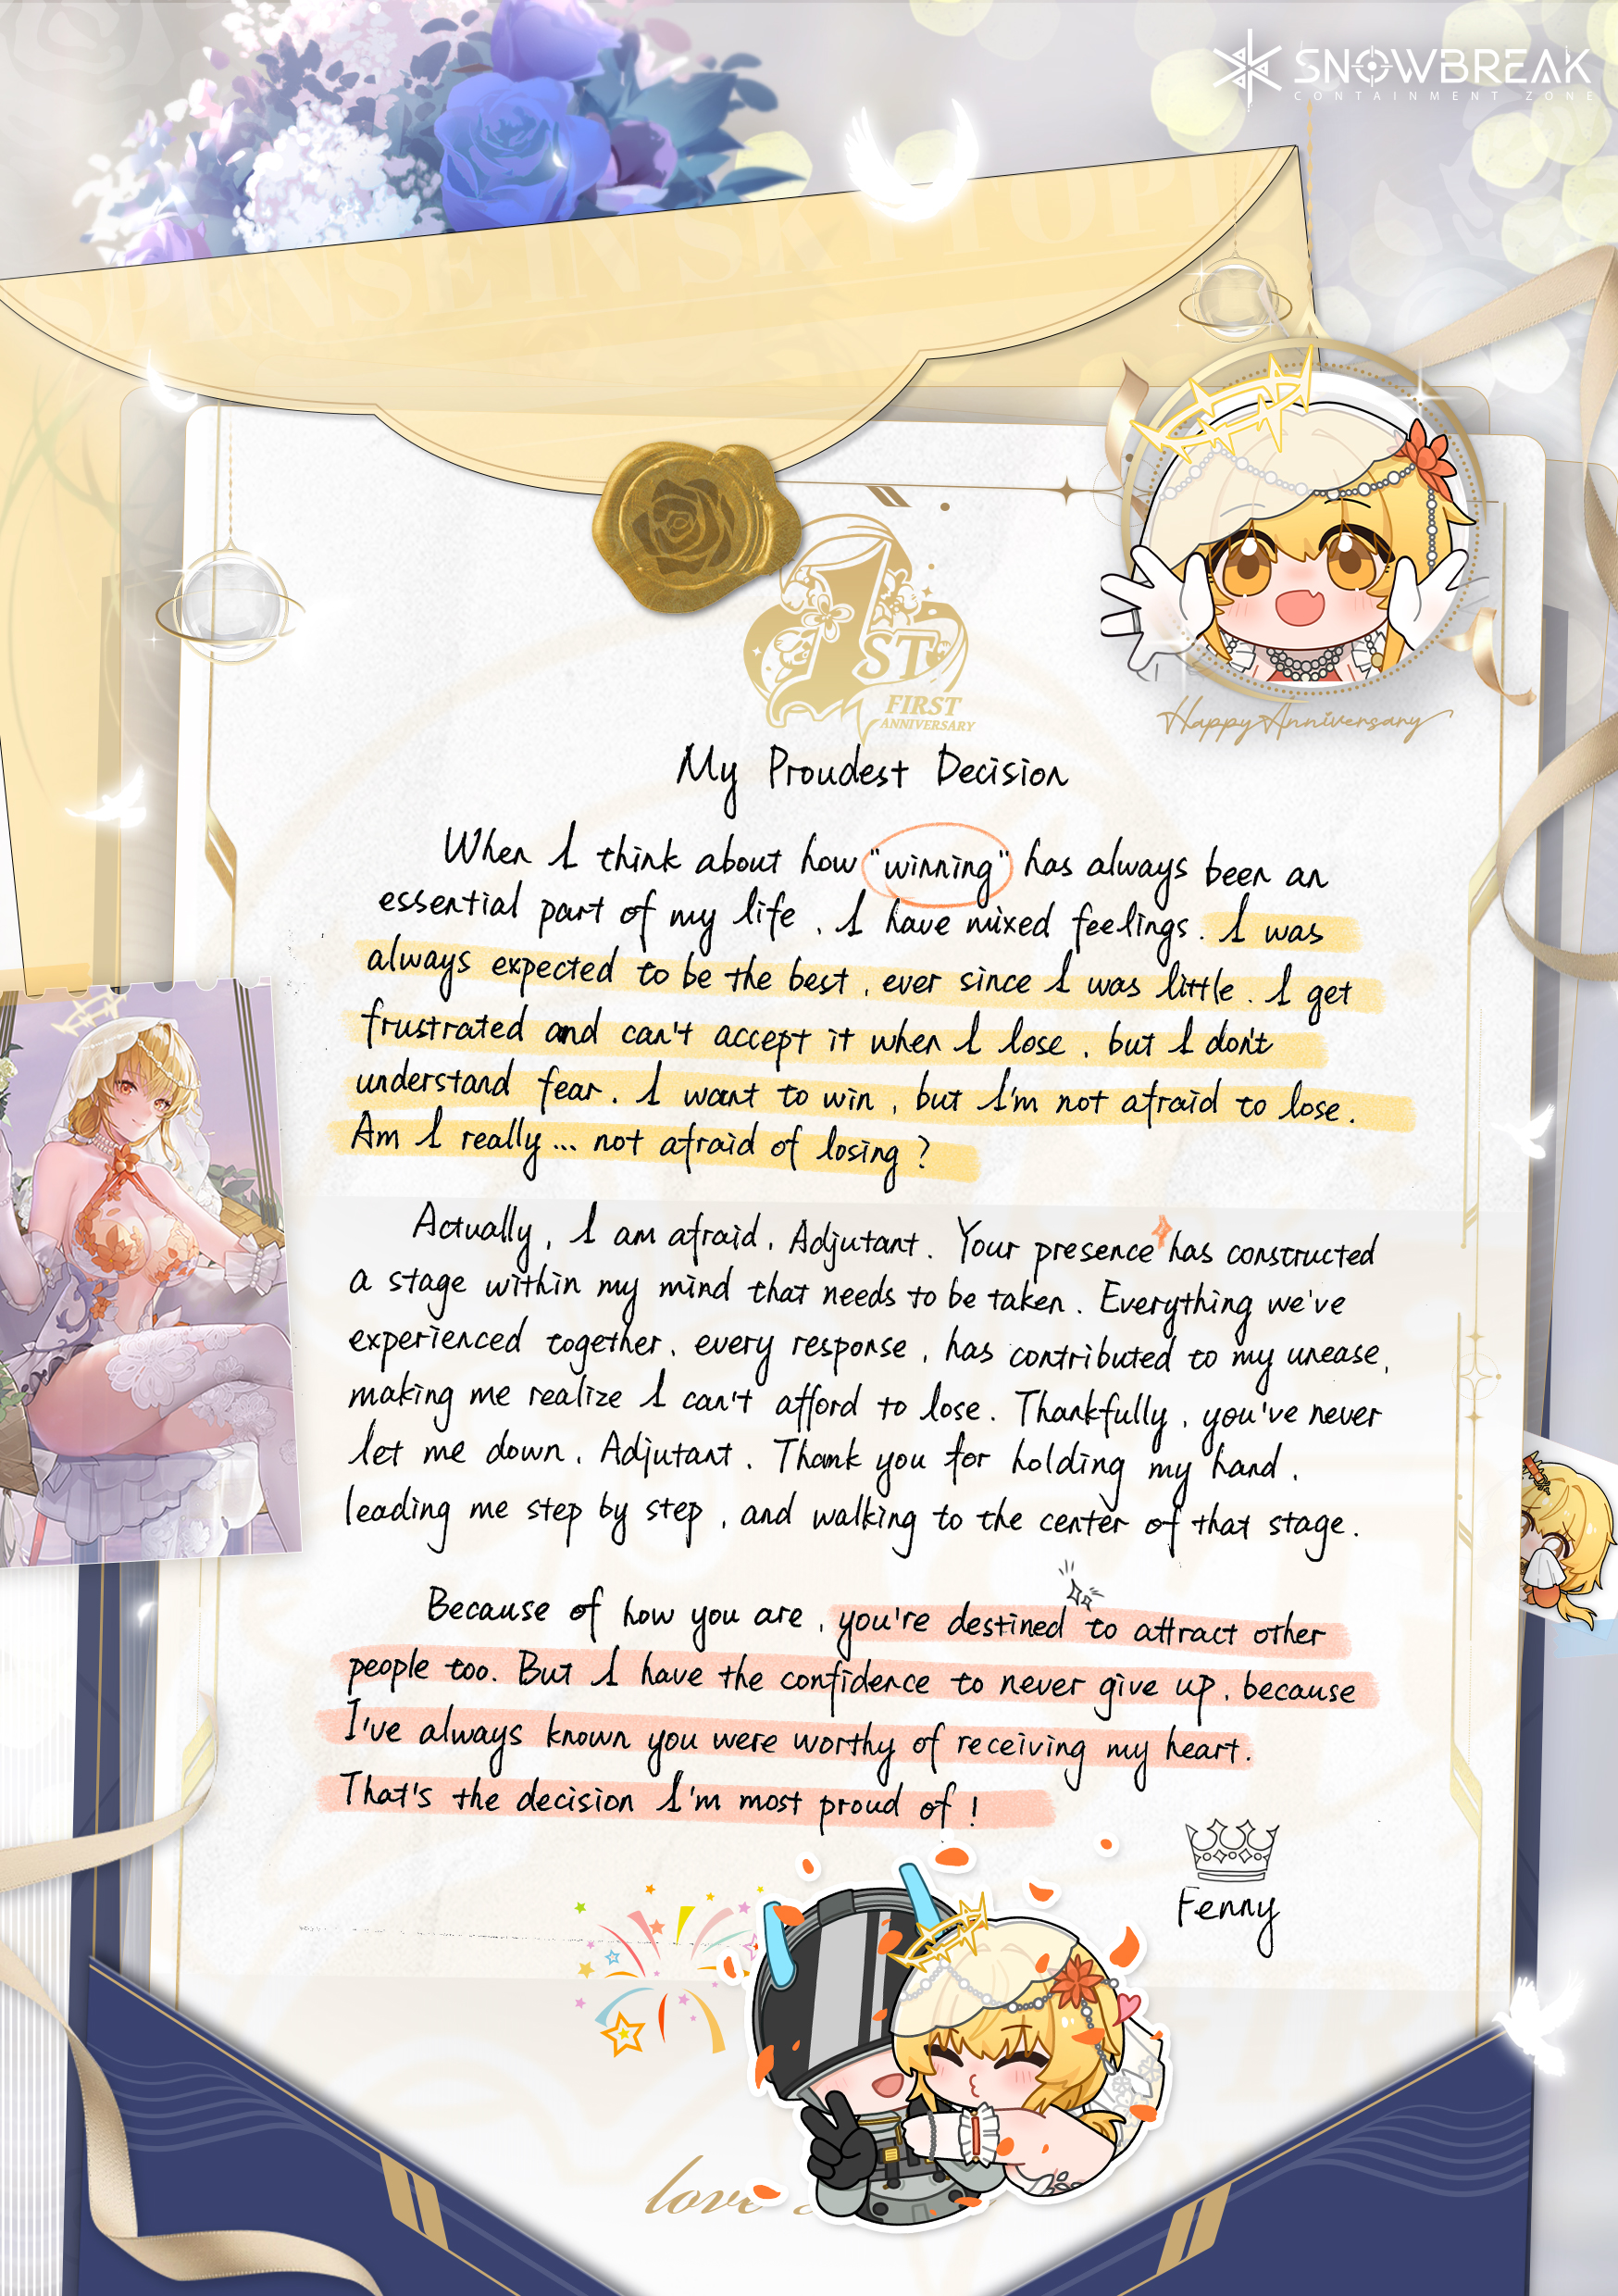 SNOWBREAK
CONTAINMENT ZONE
SPENSE IN SKYTOPI
1ST
FIRST
ANNIVERSARY
Happy Anniversary
My Proudest Decision
When I think about how "winning" has always been an
essential part of my life, I have mixed feelings. I was
always expected to be the best, ever since I was little. I get
frustrated and can't accept it when I lose, but I don't
understand fear. I want to win, but I'm not afraid to lose.
Am I really... not afraid of losing?
Actually, I am afraid, Adjutant. Your presence has constructed
a stage within my mind that needs to be taken. Everything we've
experienced together, every response, has contributed to my unease,
making me realize I can't afford to lose. Thankfully, you've never
let me down, Adjutant. Thank you for holding my hand,
leading me step by step, and walking to the center of that stage.
Because of how you are, you're destined to attract other
people too. But I have the confidence to never give up, because
I've always known you were worthy of receiving my heart.
That's the decision I'm most proud of!
Fenny
love